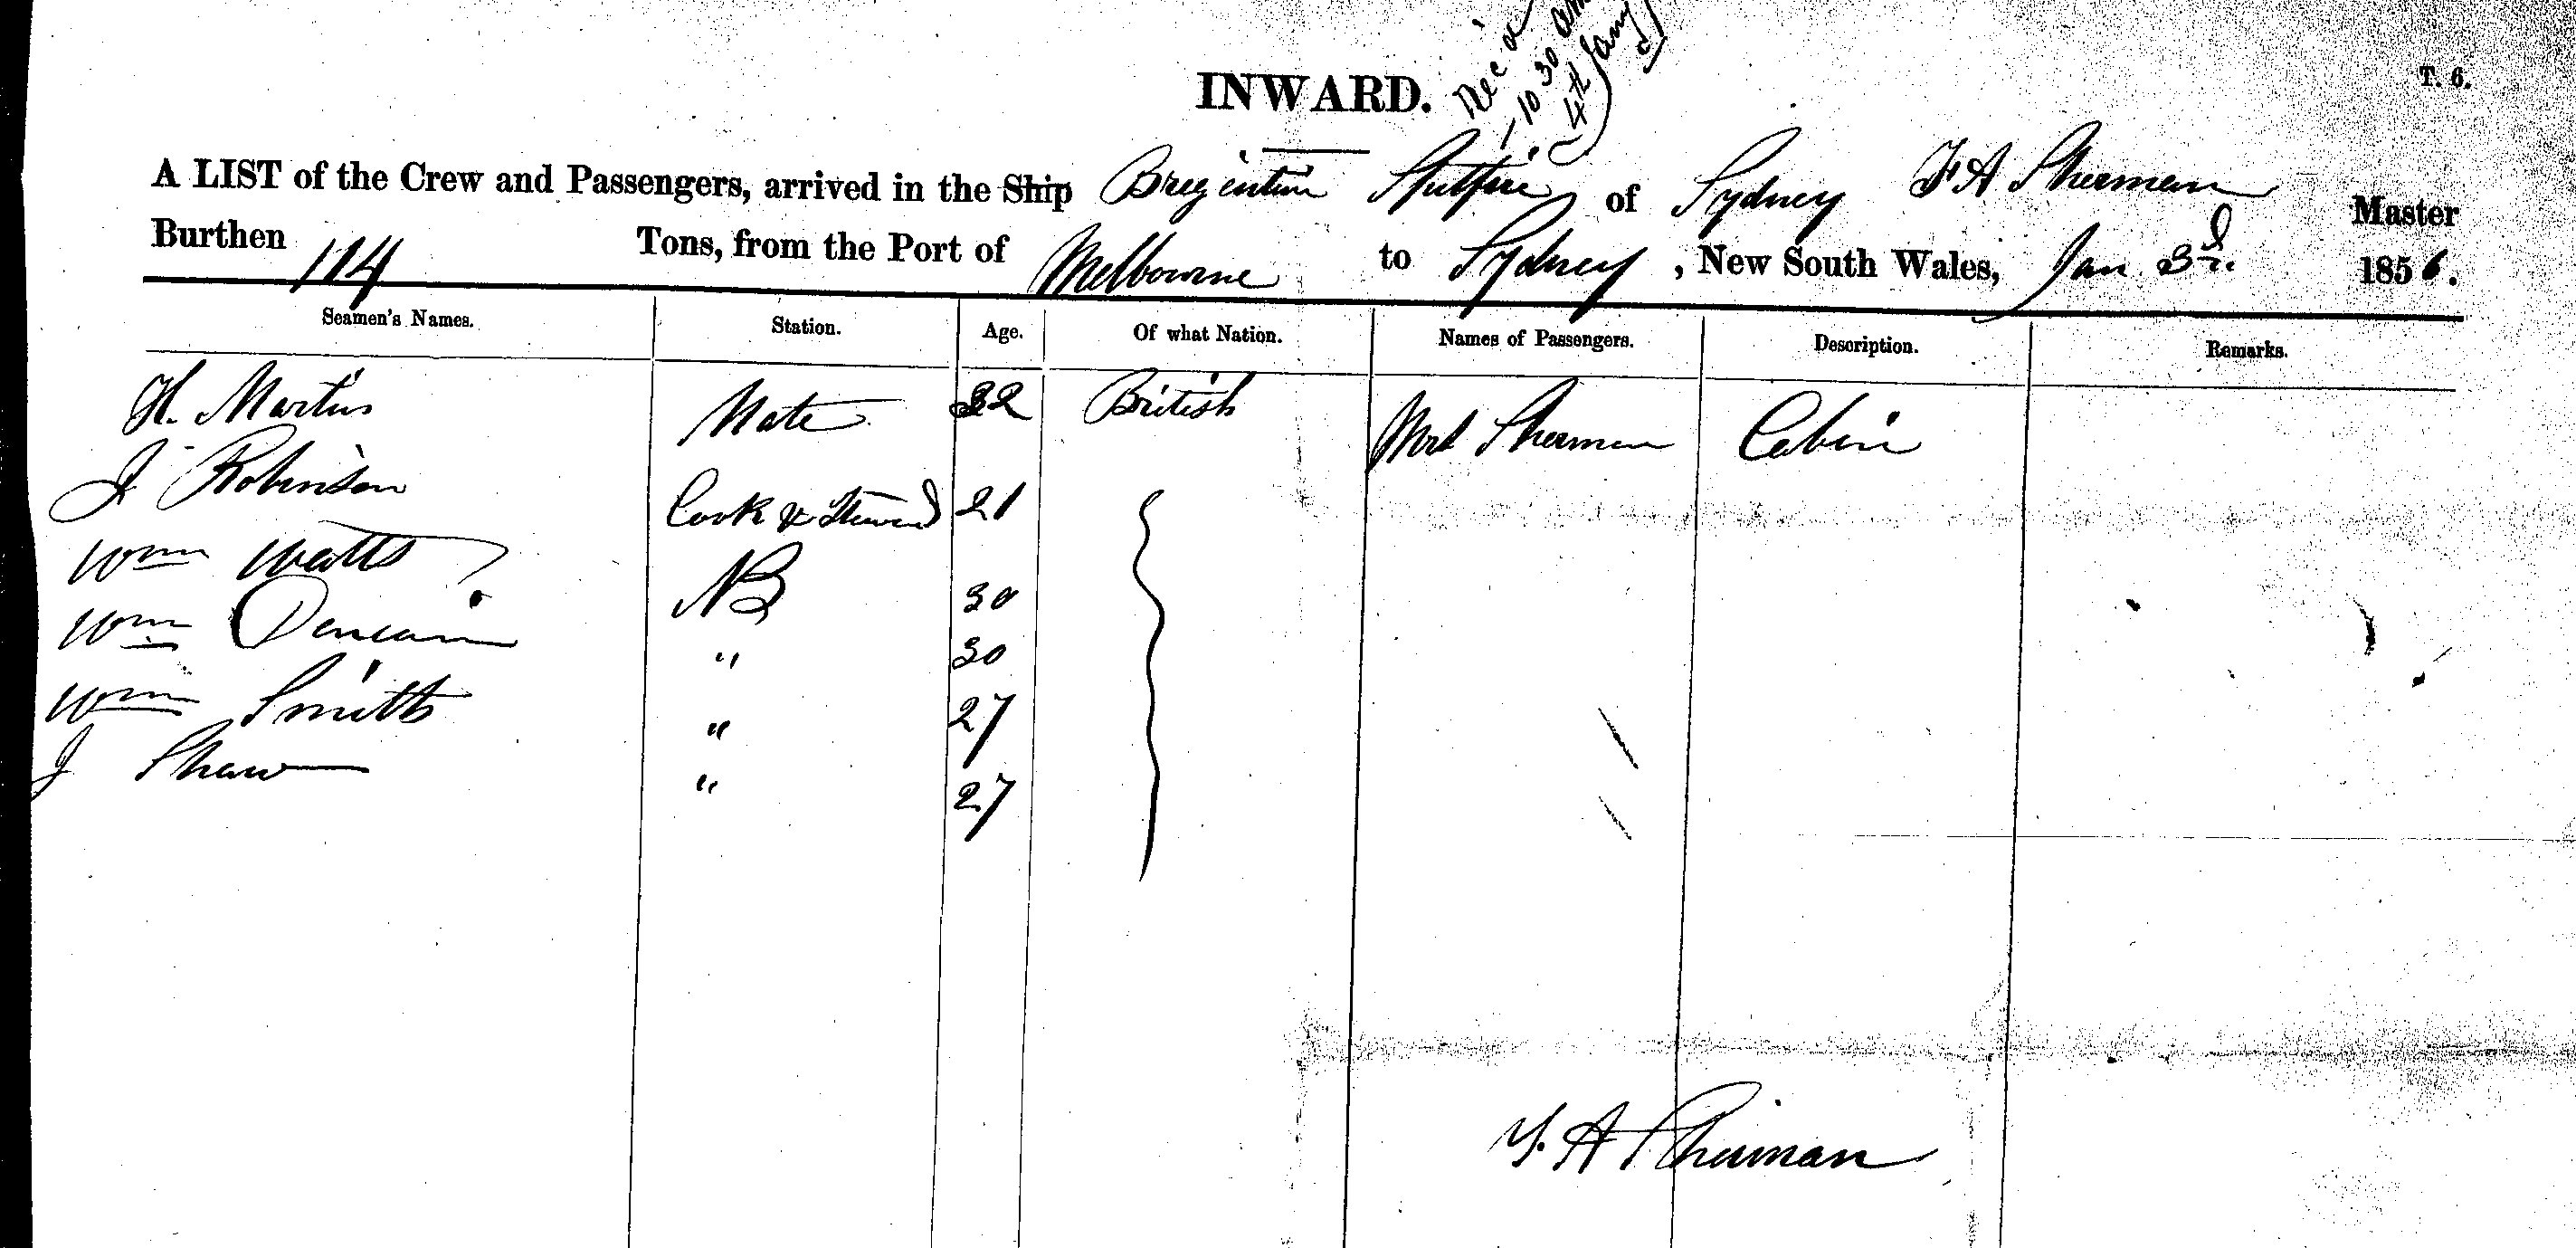 Rec'd
10 30 am
4th Jany
INWARD.
T. 6.
A LIST of the Crew and Passengers, arrived in the Ship Brigentine Spitfire of Sydney F A Sherman Master
Burthen 114 Tons, from the Port of Melbourne to Sydney, New South Wales, Jan 3rd. 1856.
Seamen's Names. Station. Age. Of what Nation. Names of Passengers. Description. Remarks.
H. Martin Mate 32 British Mrs Sherman Cabin
J Robinson Cook & Steward 21
Wm Watts AB 30
Wm Duncan " 30
Wm Smith " 27
J Shaw " 27
F. A Sherman